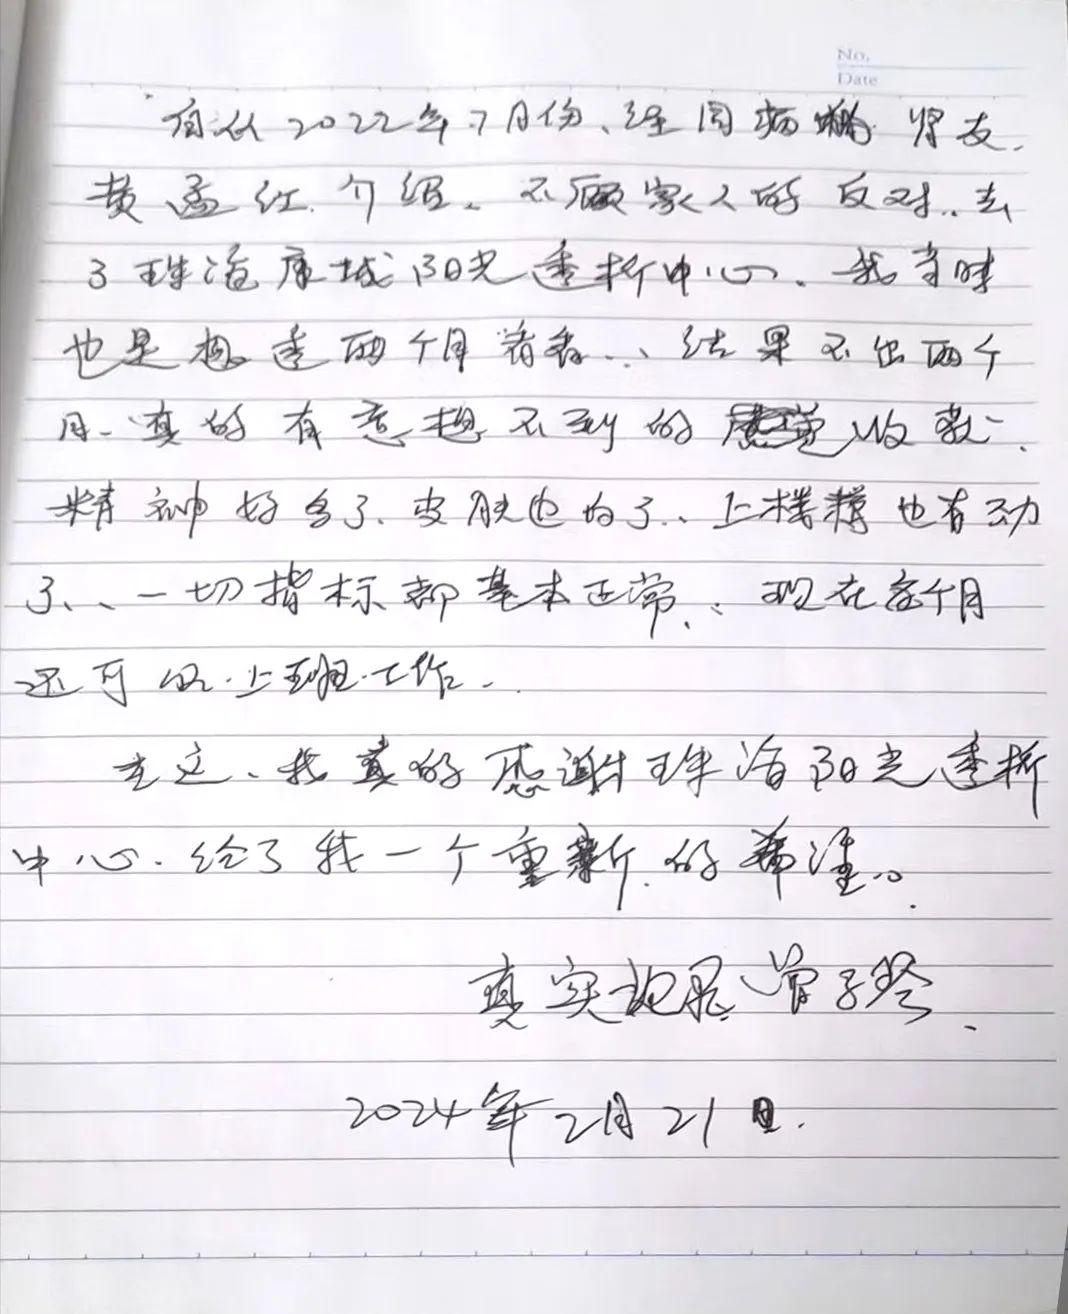 No.
Date
自从2022年7月份、经同病 肾友.
黄孟红.介绍、不顾家人的反对..去
了珠海康城阳光透析中心、我当时
也是想透两个月看看..、结果不出两个
月、真的有意想不到的 收获.
精神好多了、皮肤也白了..上楼梯也有劲
了、、一切指标都基本正常、:现在每个月
还可以.上班.工作..
在这、我真的感谢珠海阳光透析
中心.给了我一个重新.的希望。.
真实 曾子
2024年2月21日.